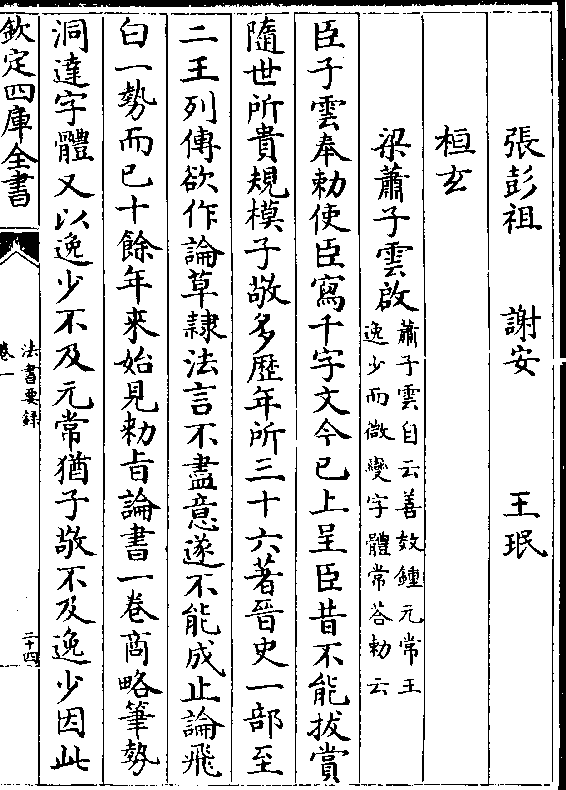 張彭祖　謝安　王珉
桓玄
梁蕭子雲啟
蕭子雲自云善效鍾元常王
逸少而微變字體常荅勅云
臣子雲奉勅使臣寫千字文今已上呈臣昔不能拔賞
隨世所貴規模子敬多歷年所三十六著晉史一部至
二王列傳欲作論草隷法言不盡意遂不能成止論飛
白一勢而已十餘年來始見勅旨論書一卷商略筆勢
洞達字體又以逸少不及元常猶子敬不及逸少因此
欽定四庫全書
法書要錄
卷一
二十四